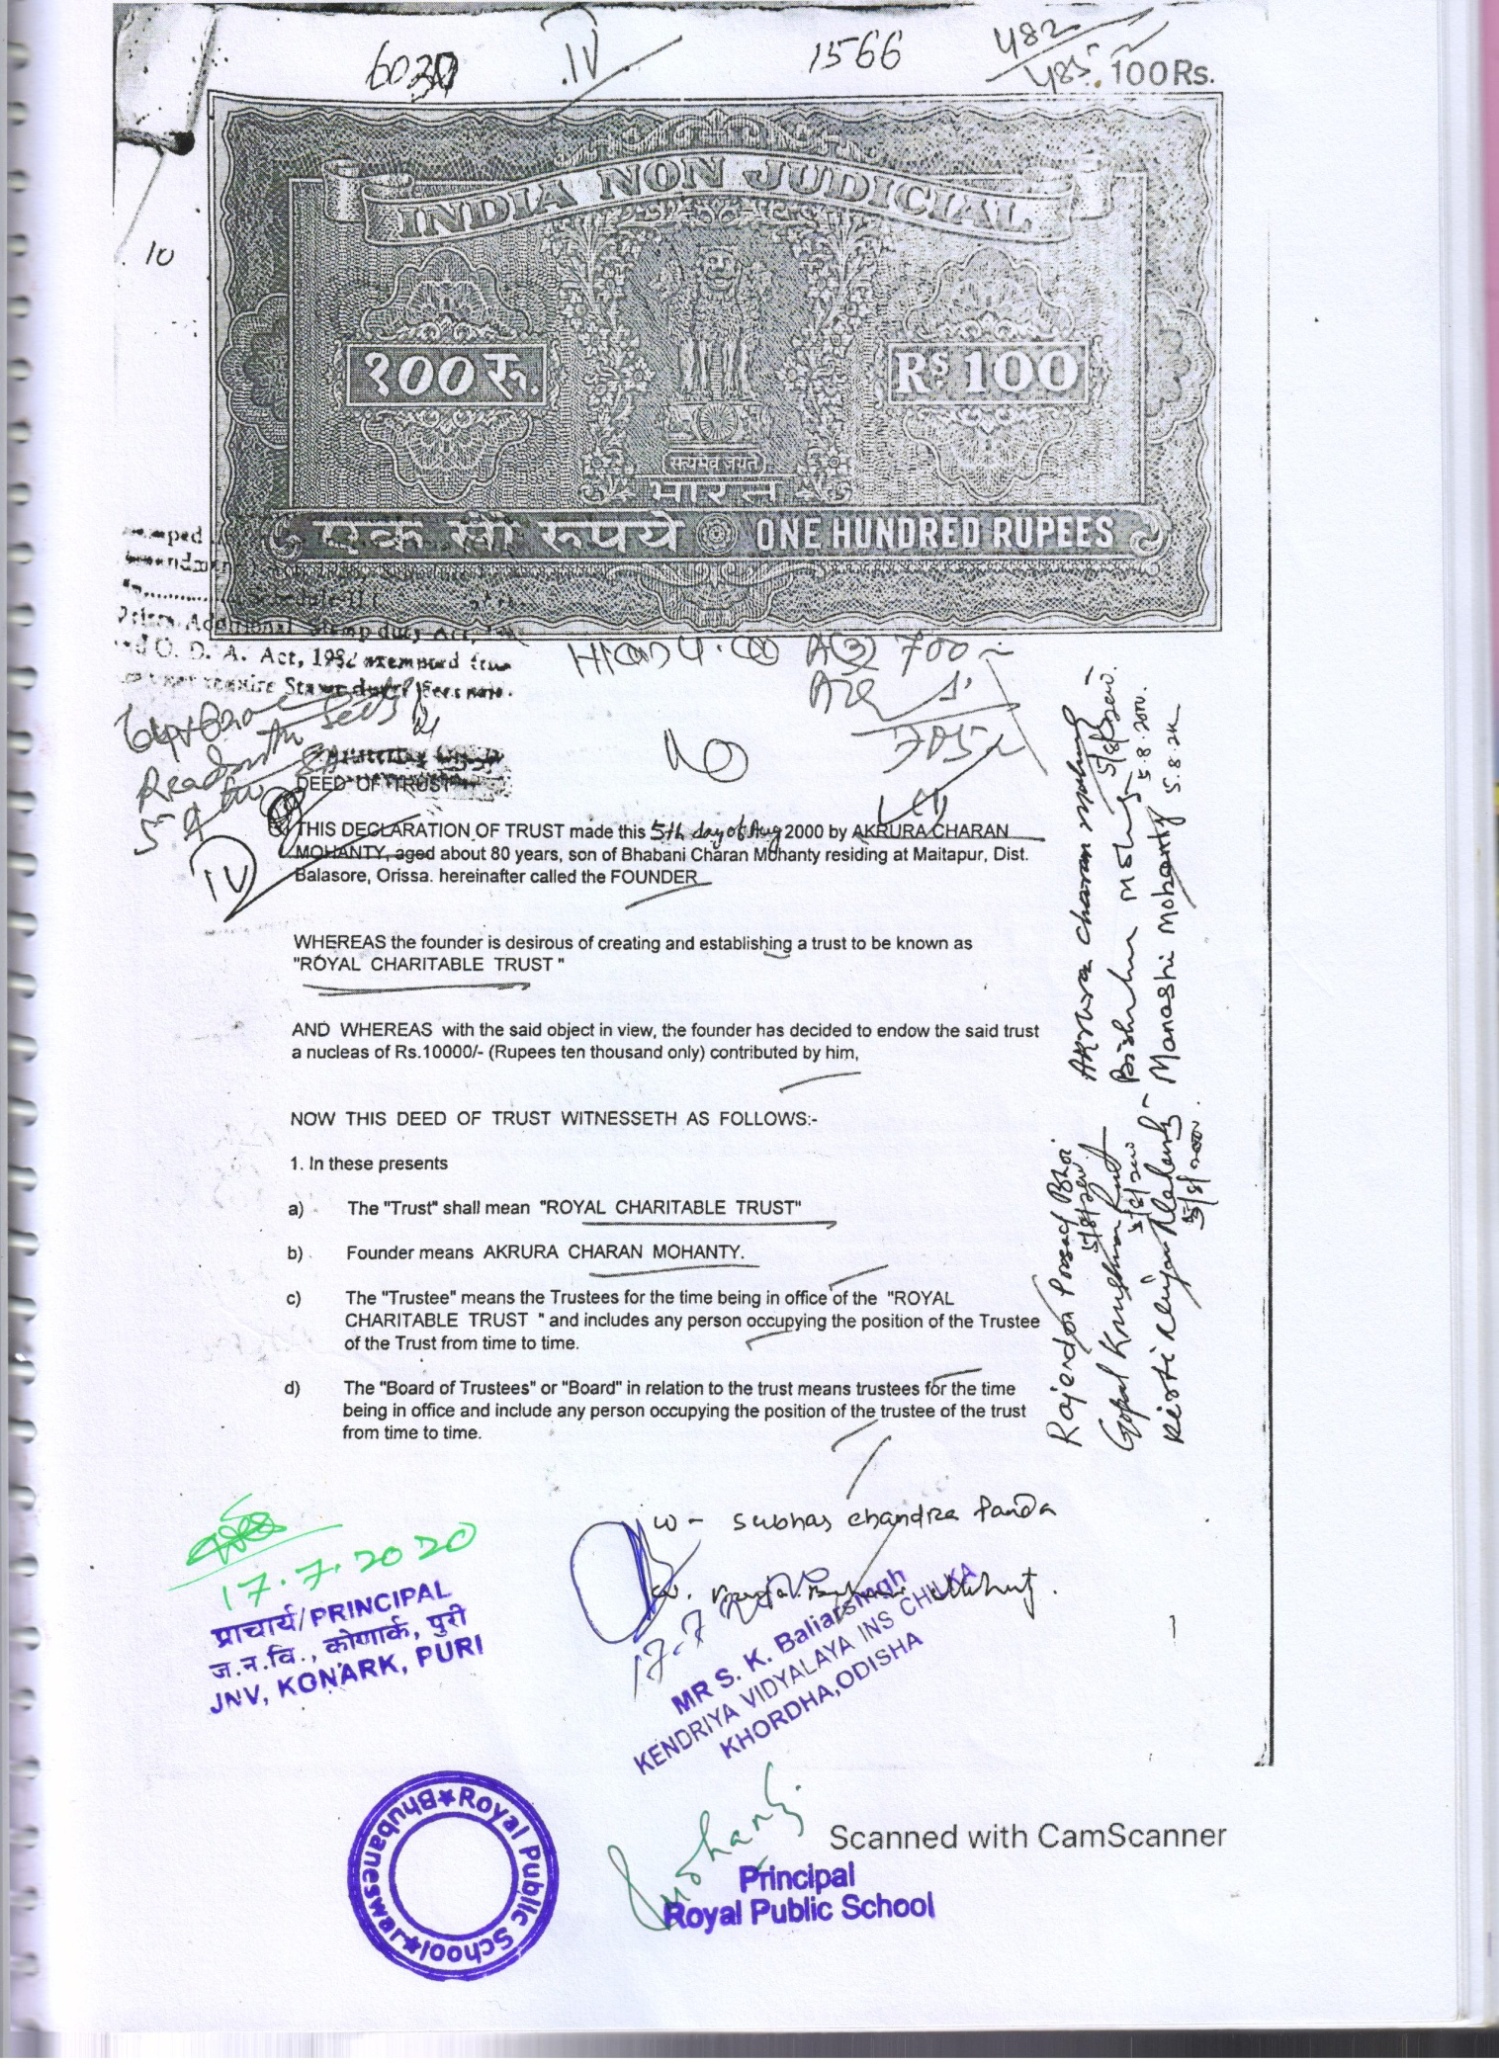 6030 IV 1566 482
485 100 Rs.
INDIA NON JUDICIAL
10
१०० रु. Rs 100
सत्यमेव जयते
भारत
एक सौ रुपये ONE HUNDRED RUPEES
Additional Stamp duty Act,
O. D. A. Act, 1982
require Stamp duty
700
DEED OF TRUST
THIS DECLARATION OF TRUST made this 5th day of Aug 2000 by AKRURA CHARAN
MOHANTY, aged about 80 years, son of Bhabani Charan Mohanty residing at Maitapur, Dist.
Balasore, Orissa. hereinafter called the FOUNDER
IV
WHEREAS the founder is desirous of creating and establishing a trust to be known as
"ROYAL CHARITABLE TRUST "
AND WHEREAS with the said object in view, the founder has decided to endow the said trust
a nucleas of Rs.10000/- (Rupees ten thousand only) contributed by him,
NOW THIS DEED OF TRUST WITNESSETH AS FOLLOWS:-
1. In these presents
a) The "Trust" shall mean "ROYAL CHARITABLE TRUST"
b) Founder means AKRURA CHARAN MOHANTY.
c) The "Trustee" means the Trustees for the time being in office of the "ROYAL
CHARITABLE TRUST " and includes any person occupying the position of the Trustee
of the Trust from time to time.
d) The "Board of Trustees" or "Board" in relation to the trust means trustees for the time
being in office and include any person occupying the position of the trustee of the trust
from time to time.
Akrura Charan Mohanty
5.8.2000
Manashi Mohanty 5.8.2k
Rajendra Prasad Bhoi
5/8/2000
Gopal Krushna
5/8/2000
5/8/2000
W - Subhas Chandra Panda
17.7.2020
प्राचार्य/PRINCIPAL
ज.न.वि., कोणार्क, पुरी
JNV, KONARK, PURI
17.7
MR S. K. Baliarsingh
KENDRIYA VIDYALAYA INS CHILKA
KHORDHA,ODISHA
Royal Public School★Bhubaneswar★
Scanned with CamScanner
Principal
Royal Public School